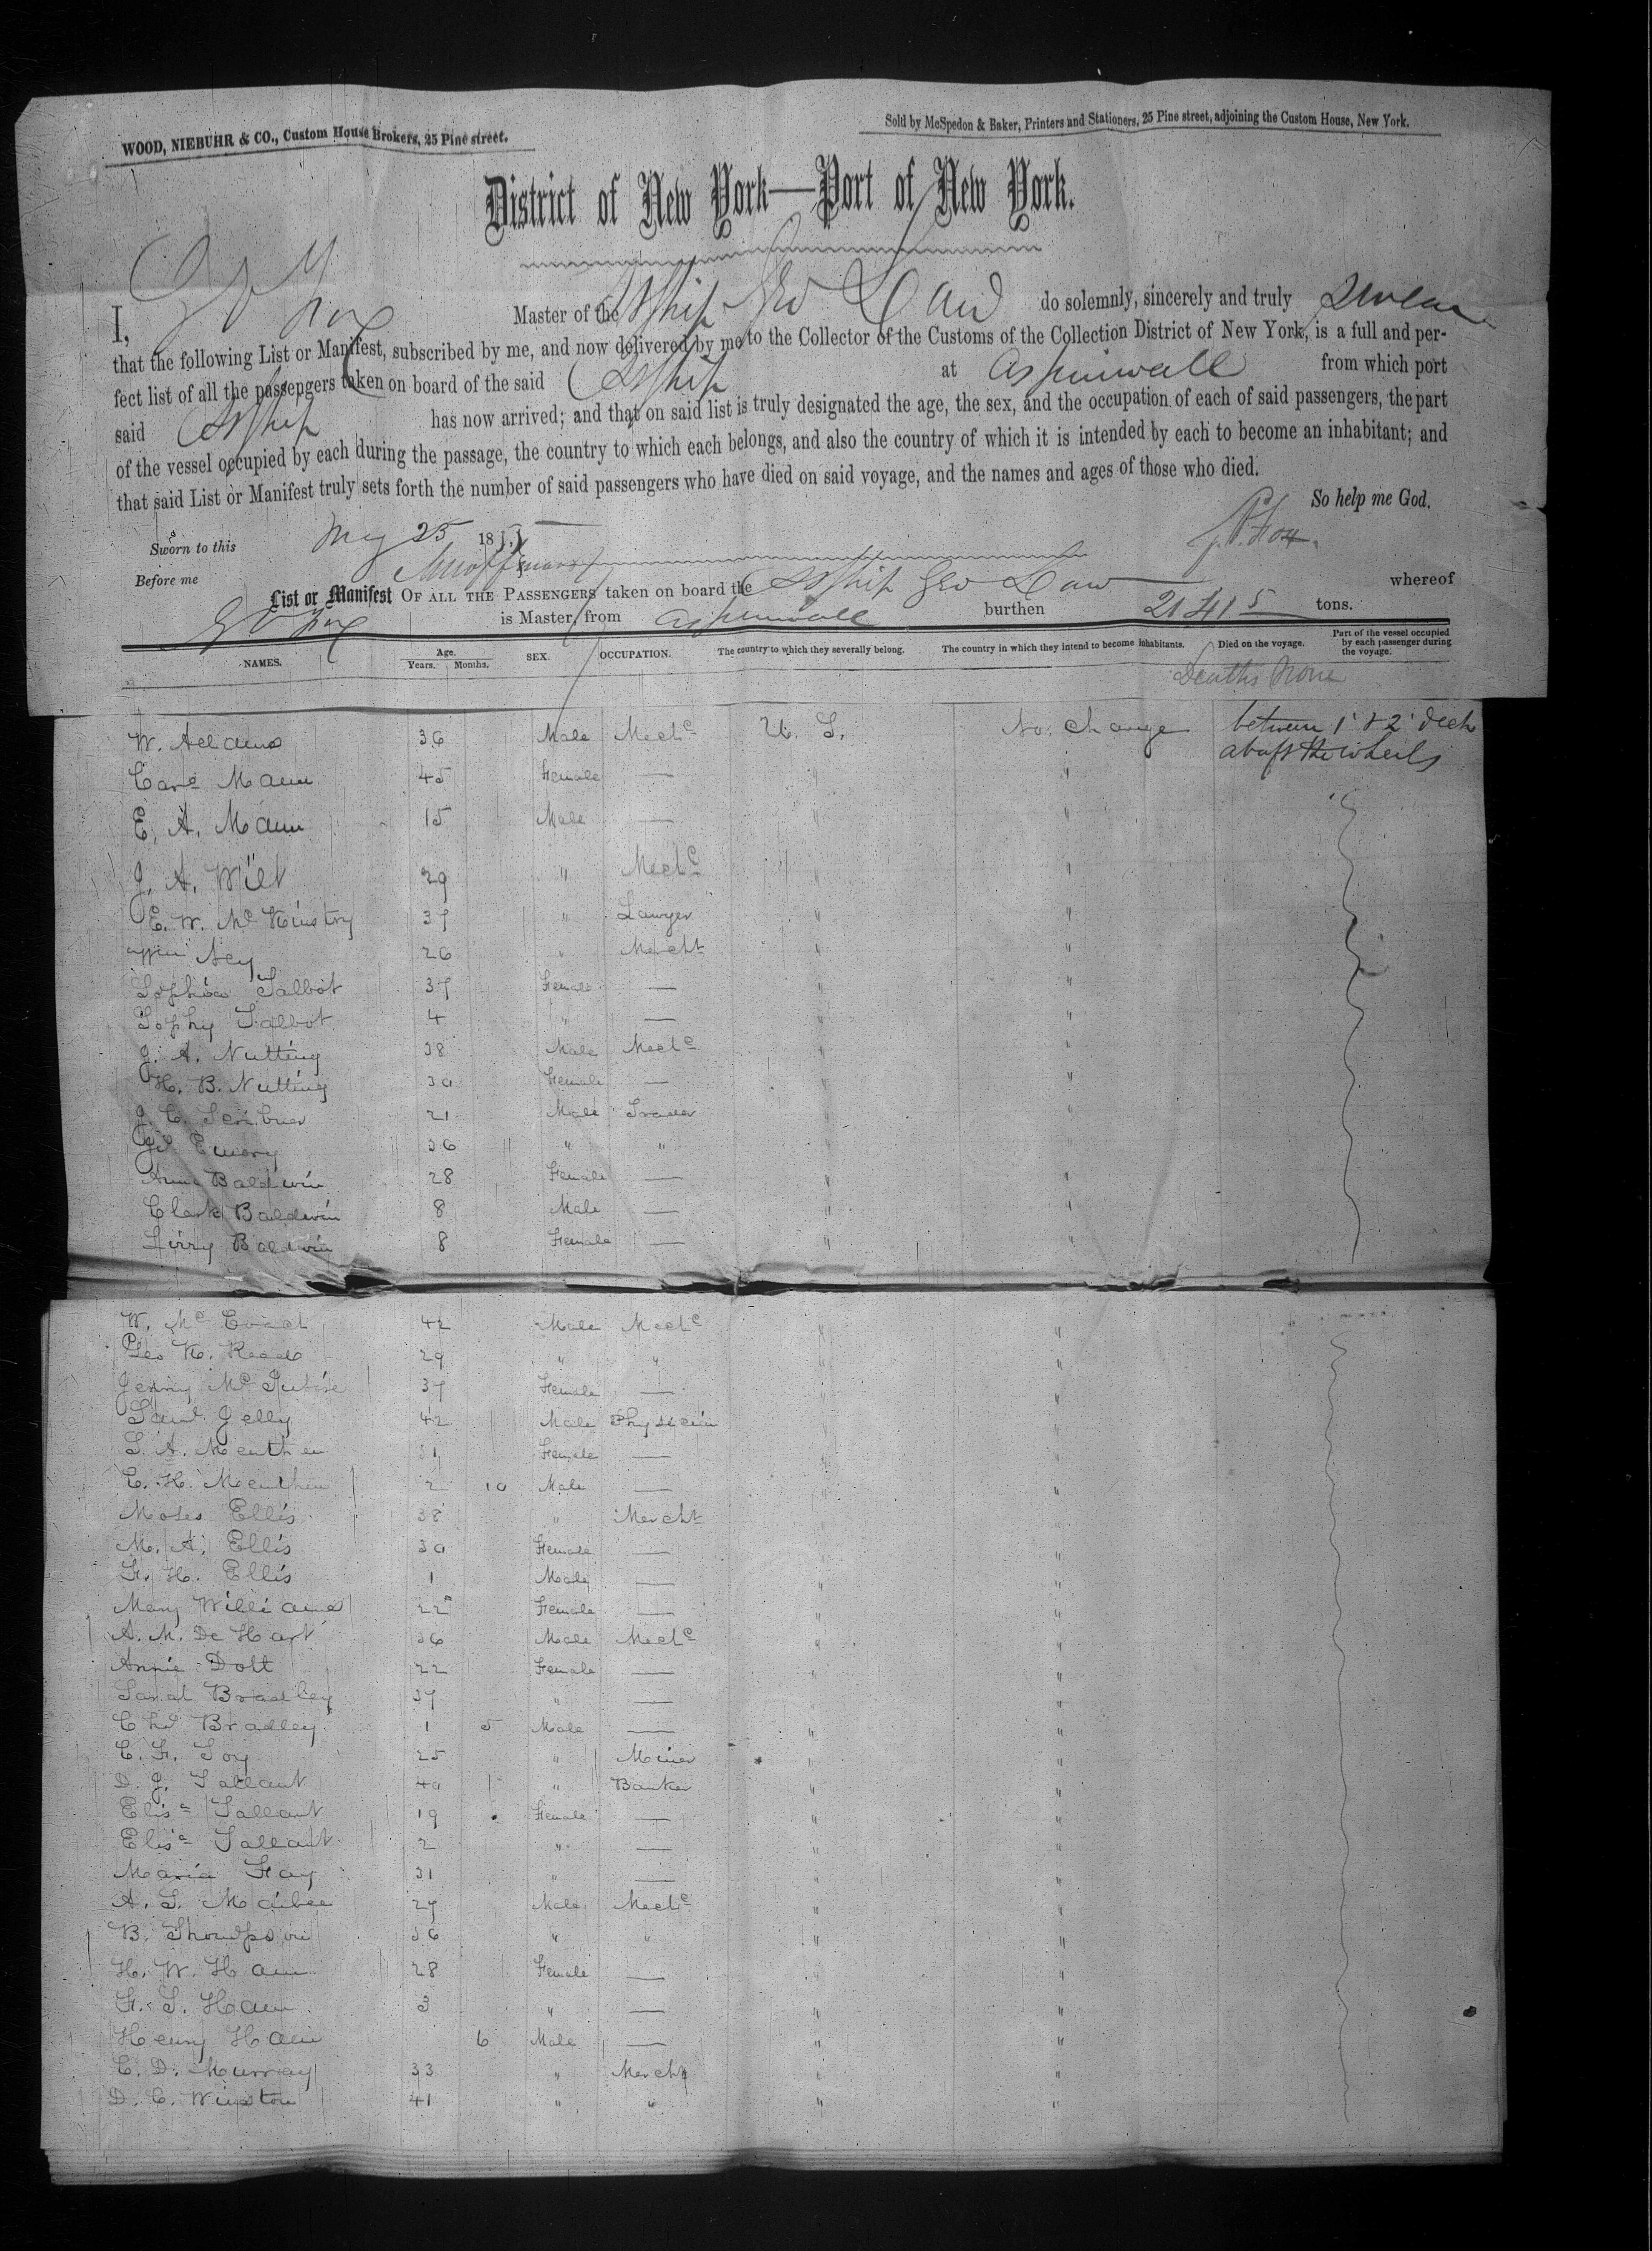 WOOD, NIEBUHR & CO., Custom House Brokers, 25 Pine street.
Sold by McSpedon & Baker, Printers and Stationers, 25 Pine street, adjoining the Custom House, New York.
District of New York—Port of New York.
I, G V Fox Master of the SShip Geo Law do solemnly, sincerely and truly swear
that the following List or Manifest, subscribed by me, and now delivered by me to the Collector of the Customs of the Collection District of New York, is a full and per-
fect list of all the passengers taken on board of the said SShip at Aspinwall from which port
said SShip has now arrived; and that on said list is truly designated the age, the sex, and the occupation of each of said passengers, the part
of the vessel occupied by each during the passage, the country to which each belongs, and also the country of which it is intended by each to become an inhabitant; and
that said List or Manifest truly sets forth the number of said passengers who have died on said voyage, and the names and ages of those who died.
So help me God.
Sworn to this May 25 1855
Before me
List or Manifest OF ALL THE PASSENGERS taken on board the SShip Geo Law whereof
G V Fox is Master, from Aspinwall burthen tons.
NAMES. Age. Years. Months. SEX. OCCUPATION. The country to which they severally belong. The country in which they intend to become inhabitants. Died on the voyage. Part of the vessel occupied by each passenger during the voyage.
Deaths None
W. Adams 36 Male Mechc U. S. No change between 1' & 2' deck
abaft the wheels
Care Mann 45 Female — " "
E. A. Mann 15 Male — " "
J. A. Wilt 29 " Mechc " "
E. W. Mc Kinstry 37 " Lawyer " "
Ney 26 " Mercht " "
Sophia Talbot 37 Female — " "
Sophy Talbot 4 " — " "
J. A. Nutting 38 Male Mechc " "
H. B. Nutting 30 Female — " "
J. C. Scribner 21 Male Trader " "
Emery 36 " " " "
Anna Baldwin 28 Female — " "
Clark Baldwin 8 Male — " "
Baldwin 8 Female — " "
W. Mc 42 Male Mechc " "
Geo K. Reade 29 " " " "
Jenny Mc 37 Female — " "
Saml Jelly 42 Male Physician " "
S. A. Menthen 31 Female — " "
C. H. Menthen 2 10 Male — " "
Moses Ellis 38 " Mercht " "
M. A. Ellis 30 Female — " "
F. H. Ellis 1 Male — " "
Mary Williams 22 Female — " "
A. M. De Hart 36 Male Mechc " "
Annie Dott 22 Female — " "
Sarah Bradley 37 " — " "
Chs Bradley 1 5 Male — " "
C. F. Foy 25 " Miner " "
D. J. Tallant 40 " Banker " "
Elisa Tallant 19 Female — " "
Elisa Tallant 2 " — " "
Maria Fay 31 " — " "
A. S. Maibee 27 Male Mechc " "
B. Thompson 36 " " " "
H. W. Ham 28 Female — " "
F. S. Ham 3 " — " "
Henry Ham 6 Male — " "
C. D. Murray 33 " Mercht " "
D. C. Winston 41 " " " "